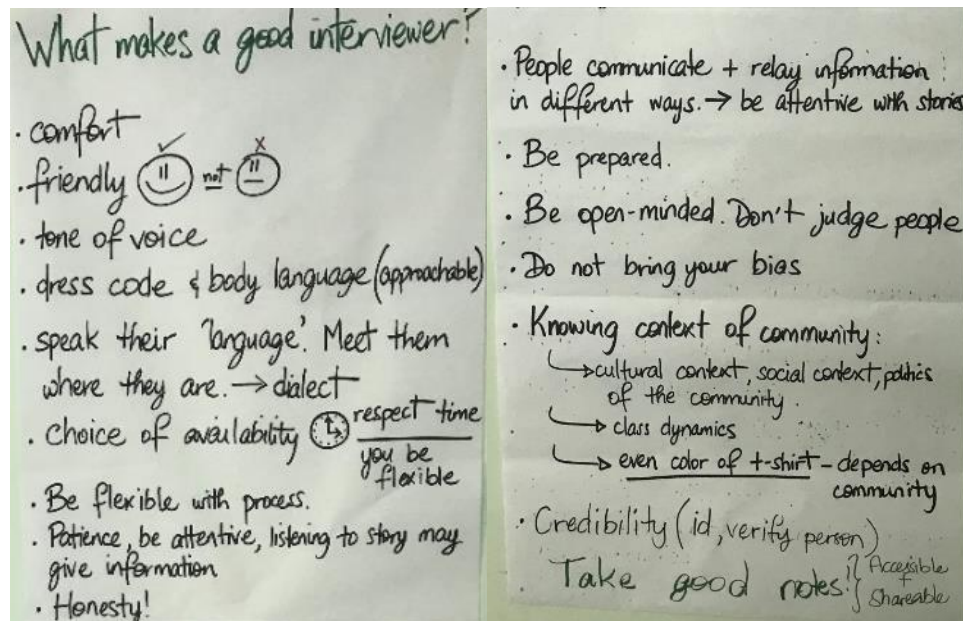 What makes a good interviewer?
· comfort
· friendly not
· tone of voice
· dress code & body language (approachable)
· speak their 'language'. Meet them
where they are. → dialect
· Choice of availability respect time
you be
flexible
· Be flexible with process.
· Patience, be attentive, listening to story may
give information
· Honesty!
· People communicate + relay information
in different ways. → be attentive with stories
· Be prepared.
· Be open-minded. Don't judge people
· Do not bring your bias
· Knowing context of community:
→ cultural context, social context, politics
of the community.
→ class dynamics
→ even color of t-shirt - depends on
community
· Credibility (id, verify person)
Take good notes! } Accessible
+
Shareable